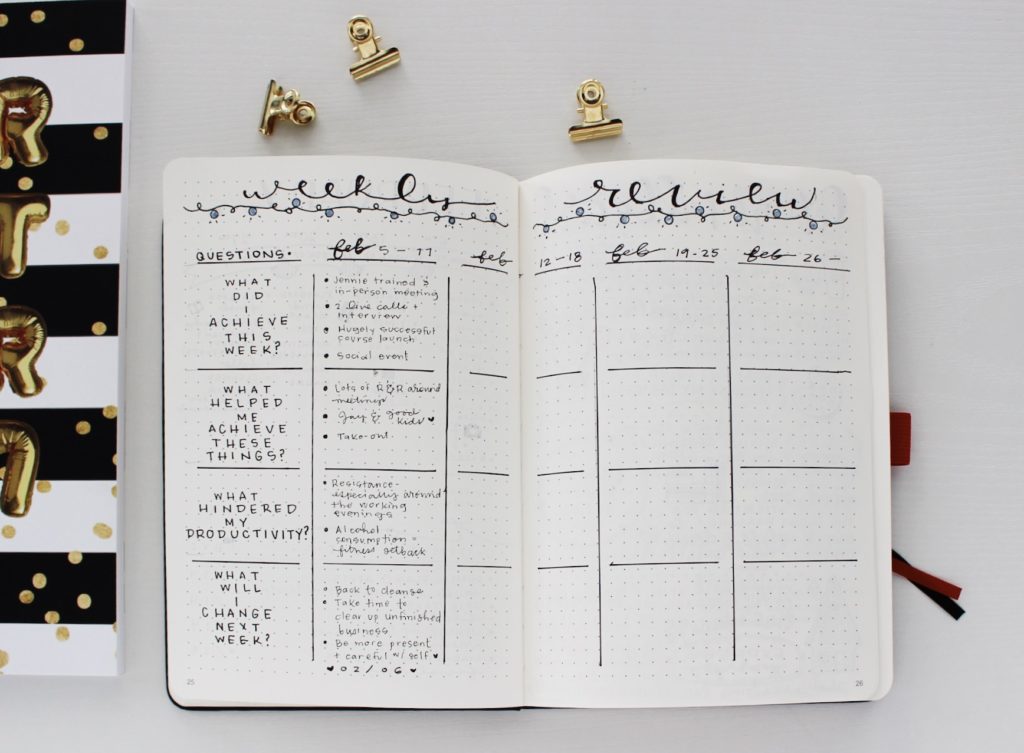 R
T
R
weekly review
QUESTIONS.
feb 5-11
feb 12-18
feb 19-25
feb 26-
WHAT
DID
I
ACHIEVE
THIS
WEEK?
• Jennie trained &
in-person meeting
• 2 live calls +
interview
• Hugely successful
course launch
• Social event
WHAT
HELPED
ME
ACHIEVE
THESE
THINGS?
• Lots of R&R around
meetings
• Jay & good
kids ♥
• Take-out
WHAT
HINDERED
MY
PRODUCTIVITY?
• Resistance-
especially around
the working
evenings
• Alcohol
consumption =
fitness setback
WHAT
WILL
I
CHANGE
NEXT
WEEK?
• Back to cleanse
• Take time to
clear up unfinished
business
• Be more present
+ careful w/ self ♥
♥ 02/06 ♥
25
26